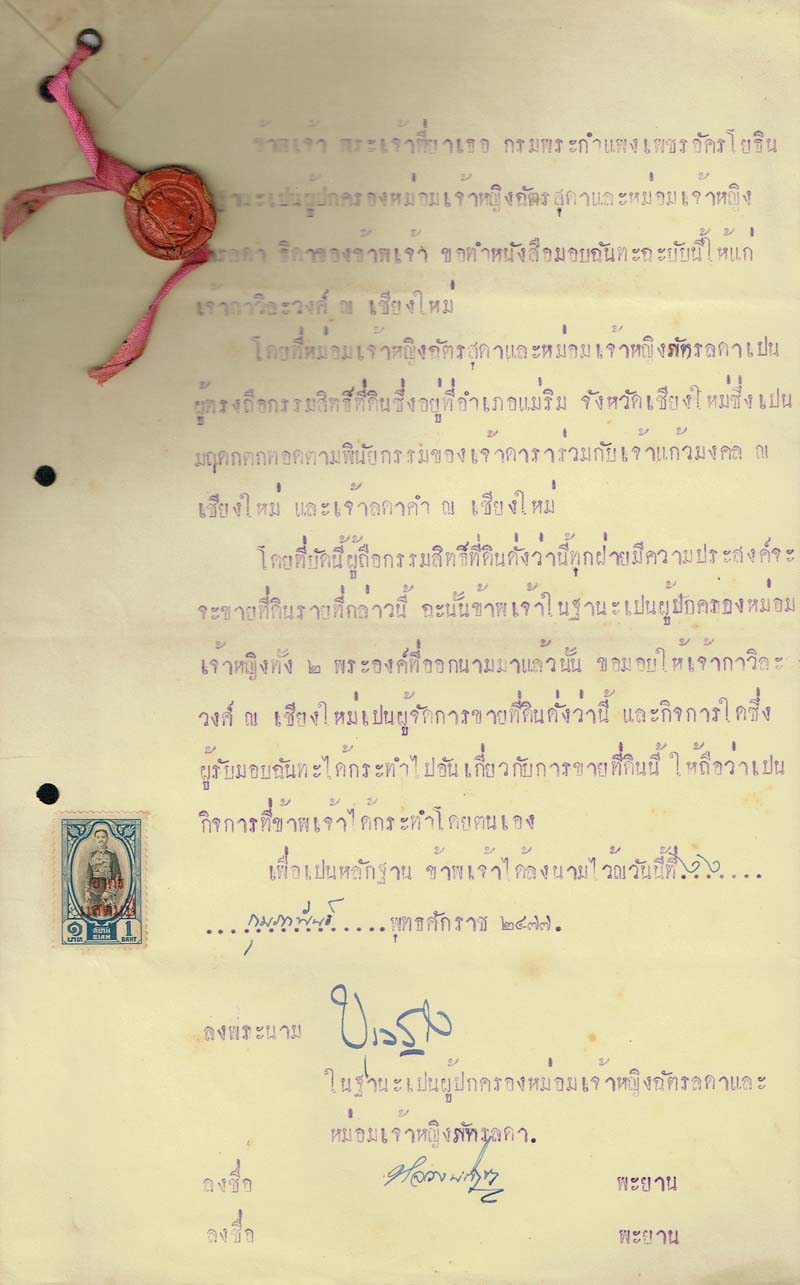 ข้าพเจ้า พระเจ้าพี่ยาเธอ กรมพระกำแพงเพชรอัครโยธิน
ฐานะเป็นผู้ปกครองหม่อมเจ้าหญิงฉัตรสุดาและหม่อมเจ้าหญิง
ธิดาของข้าพเจ้า ขอทำหนังสือมอบฉันทะฉะบับนี้ให้แก่
เจ้ากาวิละวงศ์ ณ เชียงใหม่
โดยที่หม่อมเจ้าหญิงฉัตรสุดาและหม่อมเจ้าหญิงภัทรลดาเปน
ผู้ตรงถือกรรมสิทธิ์ที่ดินซึ่งอยู่ที่อำเภอแม่ริม จังหวัดเชียงใหม่ซึ่งเปน
มฤดกตกทอดตามพินัยกรรมของเจ้าดาราร่วมกับเจ้าแก้วมงคล ณ
เชียงใหม่ และเจ้าลดาคำ ณ เชียงใหม่
โดยที่บัดนี้ผู้ถือกรรมสิทธิ์ที่ดินดั่งว่านี้ทุกฝ่ายมีความประสงค์จะ
จะขายที่ดินรายที่กล่าวนี้ ฉะนั้นข้าพเจ้าในฐานะเปนผู้ปกครองหม่อม
เจ้าหญิงทั้ง ๒ พระองค์ที่ออกนามมาแล้วนั้น ขอมอบให้เจ้ากาวิละ
วงศ์ ณ เชียงใหม่เปนผู้จัดการขายที่ดินดั่งว่านี้ และกิจการใดซึ่ง
ผู้รับมอบฉันทะได้กระทำไปอันเกี่ยวกับการขายที่ดินนี้ ให้ถือว่าเปน
กิจการที่ข้าพเจ้าได้กระทำโดยตนเอง
เพื่อเปนหลักฐาน ข้าพเจ้าได้ลงนามไว้ณวันนี้ที่ ๖๖....
....กุมภาพันธ์.....พุทธศักราช ๒๔๗๗.
อากร
แสตมป์
๑ บาท สยาม SIAM 1 BAHT
ลงพระนาม
ในฐานะเปนผู้ปกครองหม่อมเจ้าหญิงฉัตรลดาและ
หม่อมเจ้าหญิงภัทรลดา.
ลงชื่อ พะยาน
ลงชื่อ พะยาน